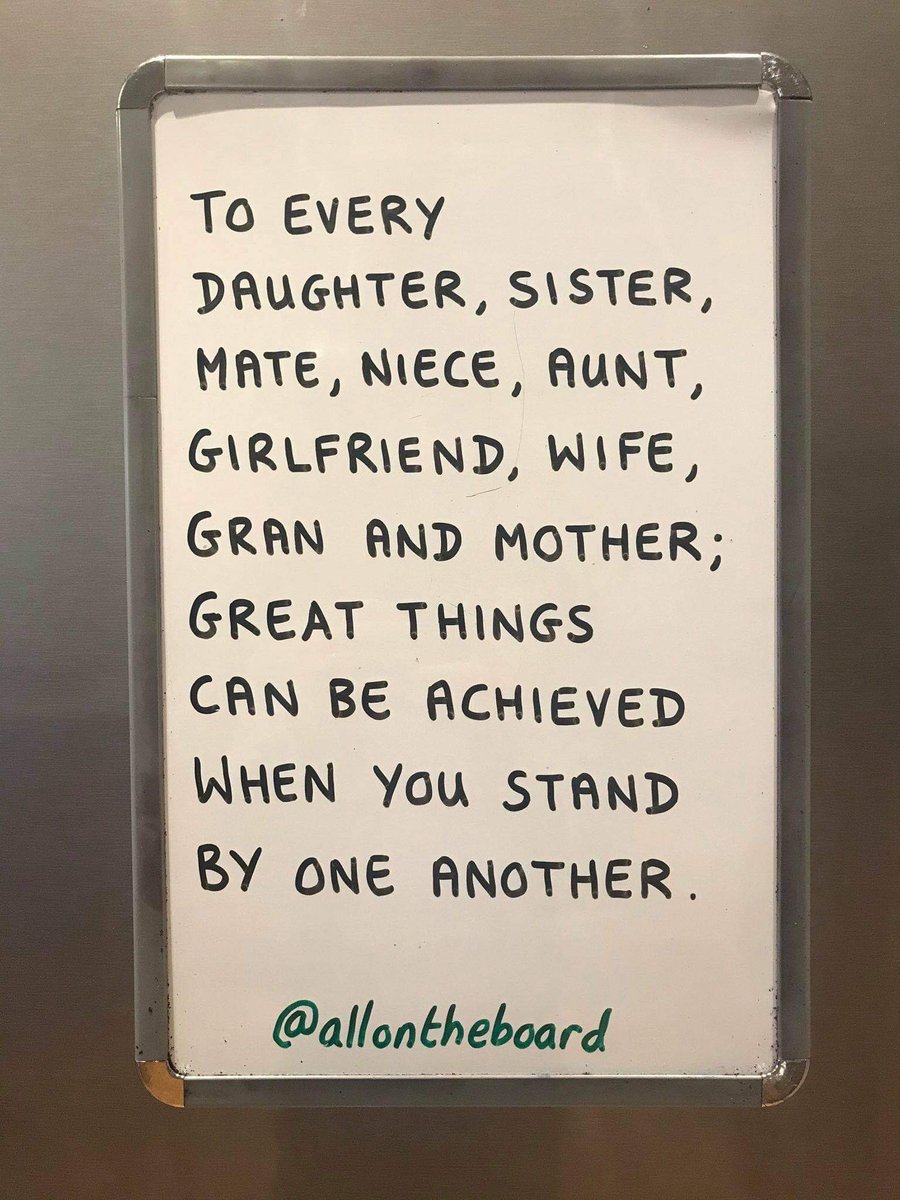 TO EVERY
DAUGHTER, SISTER,
MATE, NIECE, AUNT,
GIRLFRIEND, WIFE,
GRAN AND MOTHER;
GREAT THINGS
CAN BE ACHIEVED
WHEN YOU STAND
BY ONE ANOTHER.
@allontheboard